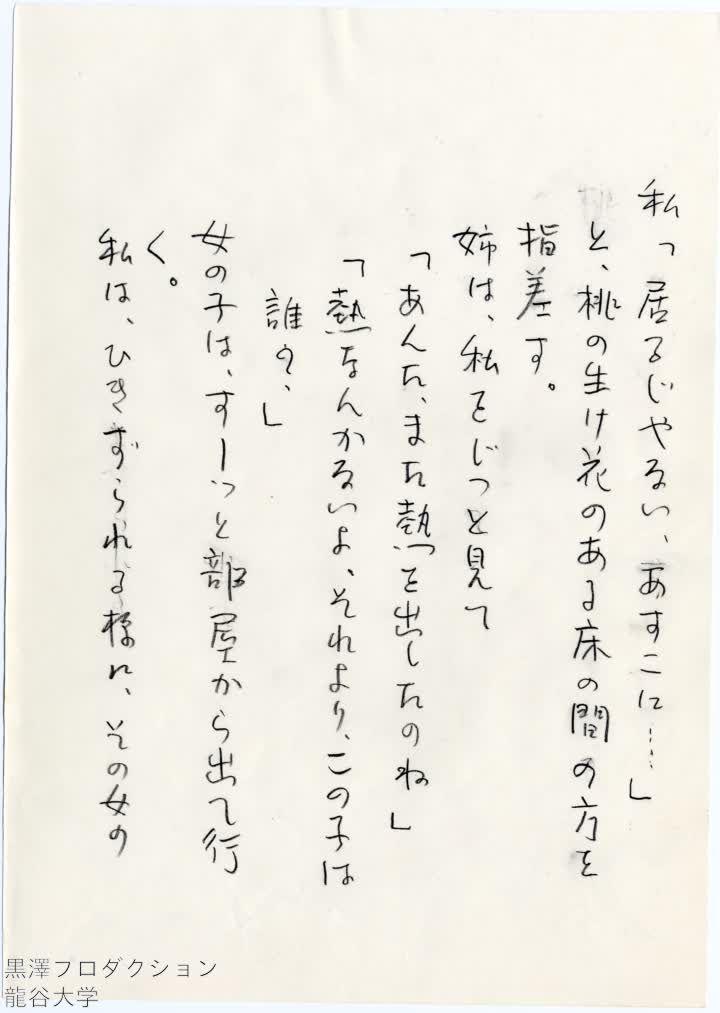 私「居るじやない、あすこに……」
と、桃の生け花のある床の間の方を
指差す。
姉は、私をじっと見て
「あんた、また熱を出したのね」
「熱なんかないよ、それより、この子は
誰？、」
女の子は、すーっと部屋から出て行
く。
私は、ひきずられる様に、その女の
黒澤プロダクション
龍谷大学